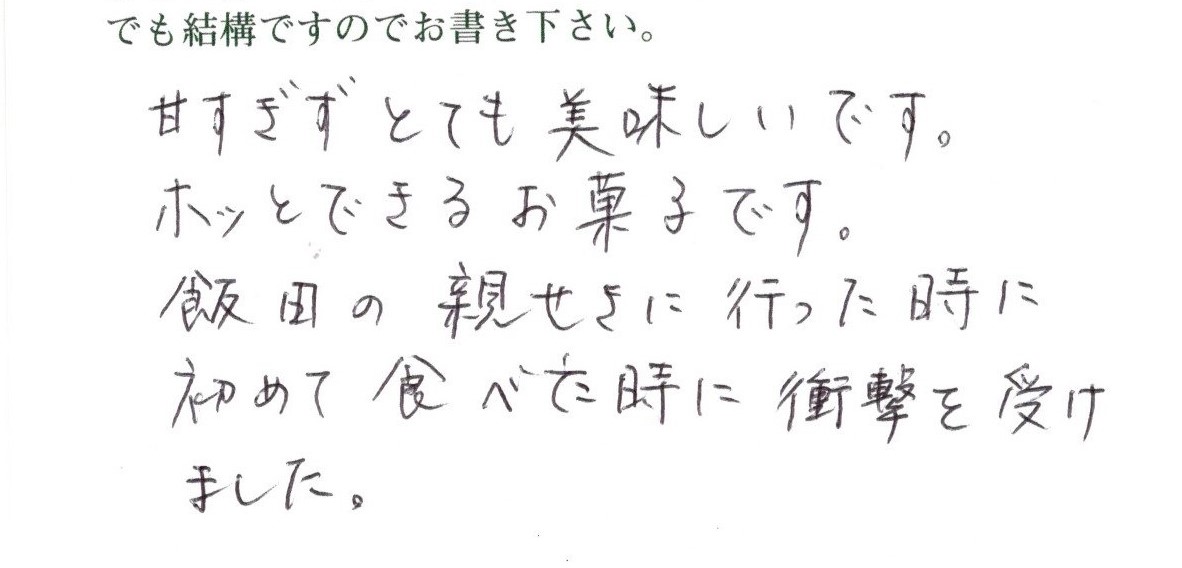 でも結構ですのでお書き下さい。
甘すぎずとても美味しいです。
ホッとできるお菓子です。
飯田の親せきに行った時に
初めて食べた時に衝撃を受け
ました。